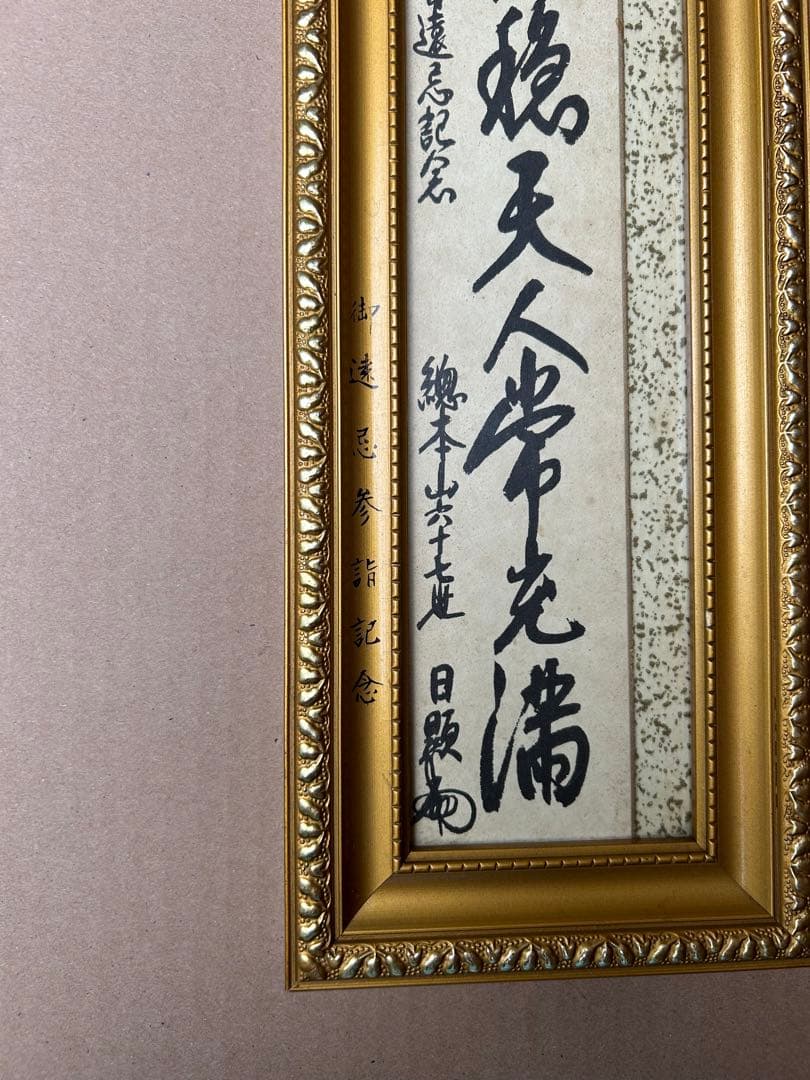 穏天人常充満
遠忌記念
總本山六十七世 日顕
御遠忌参詣記念